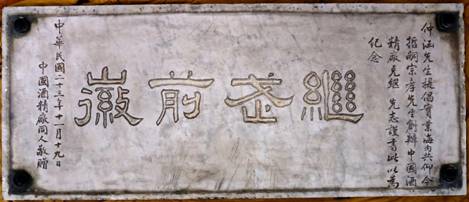 仲涵先生提倡實業海內共仰令
哲嗣宗孝先生創辦中國酒
精廠克繼 先志謹書此以為
紀念
繼武前徽
中華民國二十三年十一月十九日
中國酒精廠同人敬贈